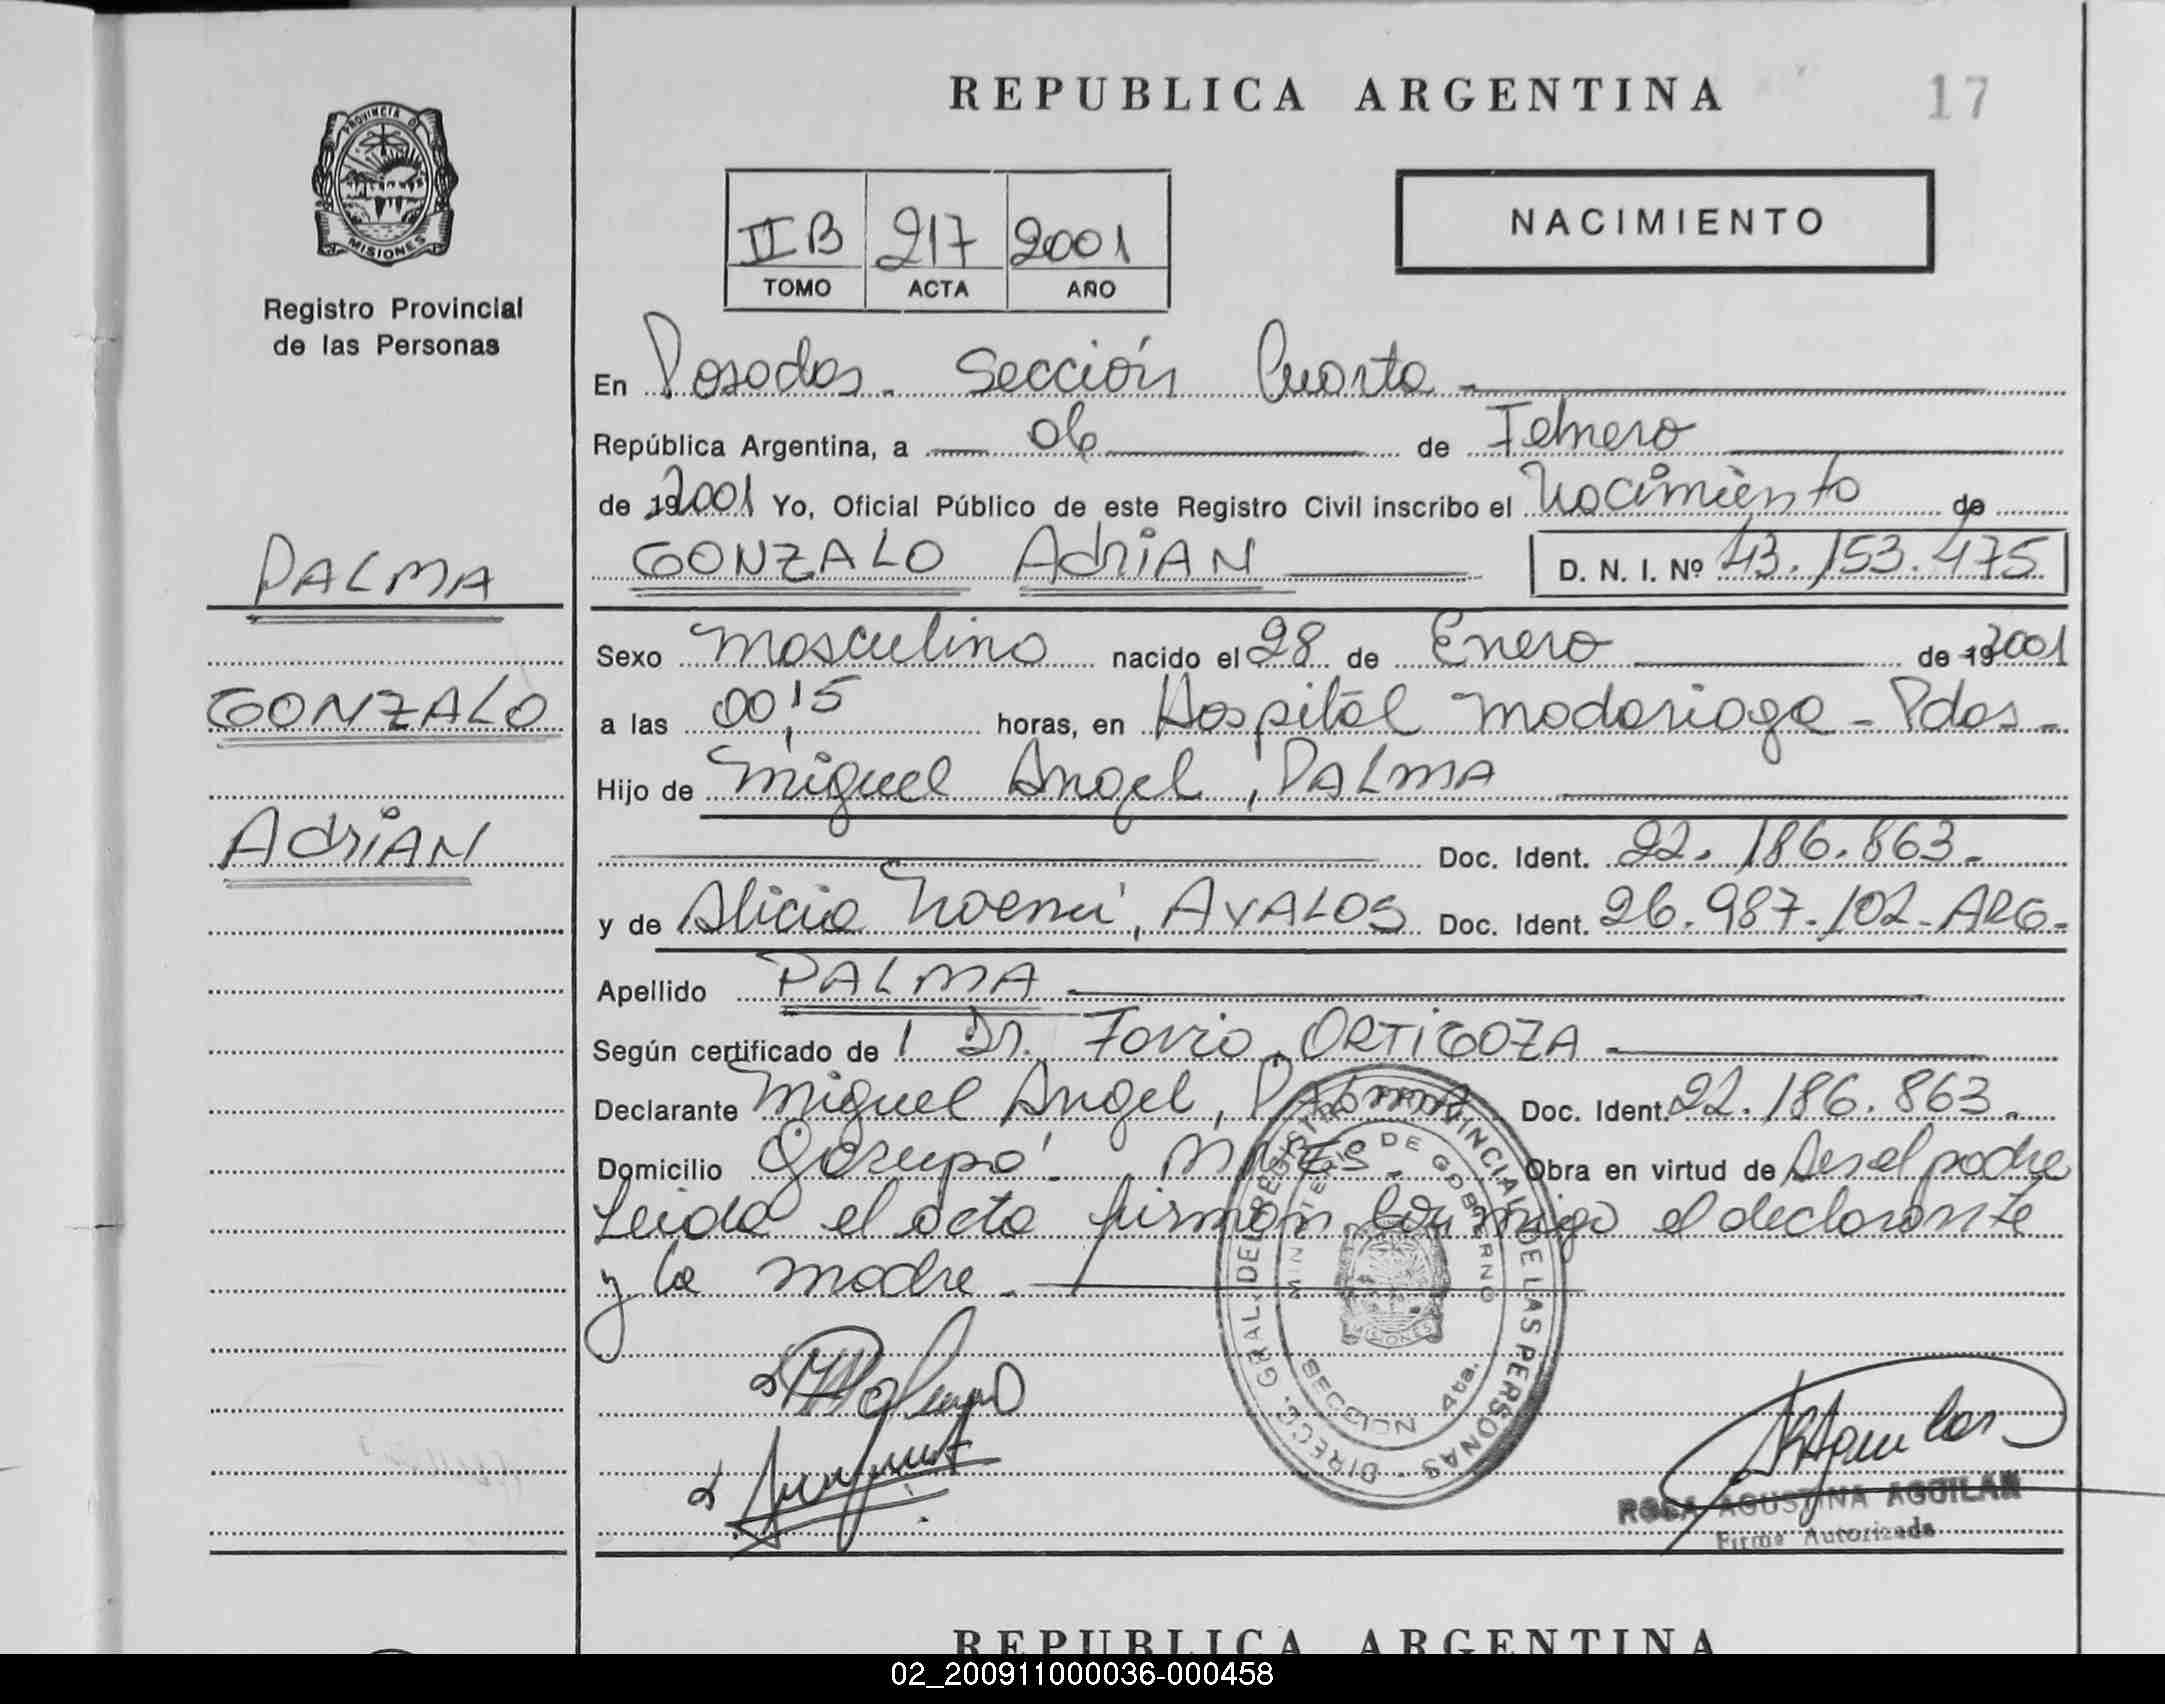 REPUBLICA ARGENTINA
17
PROVINCIA DE
MISIONES
Registro Provincial
de las Personas
II B 217 2001
TOMO ACTA AÑO
NACIMIENTO
En Posadas - Sección Cuarta -
República Argentina, a 06 de Febrero
de 192001 Yo, Oficial Público de este Registro Civil inscribo el Nacimiento de
GONZALO AdriAN D. N. I. Nº 43.153.475
PALMA
GONZALO
AdriAN
Sexo Masculino nacido el 28 de Enero de 192001
a las 00,15 horas, en Hospital Madariaga - Pdas -
Hijo de Miguel Angel, PALMA
Doc. Ident. 22.186.863-
y de Alicia Noemí, AYALOS Doc. Ident. 26.987.102-ARG-
Apellido PALMA
Según certificado de 1 Dr. Favio, ORTIGOZA
Declarante Miguel Angel, PALMA Doc. Ident. 22.186.863-
Domicilio Garupá - MNES - Obra en virtud de ser el padre
Leida el acta firman conmigo el declarante
y la madre -
DIRECC. GRAL. DEL REGISTRO PROVINCIAL DE LAS PERSONAS
MINISTERIO DE GOBIERNO
MISIONES
SECCION 4ta.
ROSA AGUSTINA AGUILAR
Firma Autorizada
REPUBLICA ARGENTINA
02_200911000036-000458